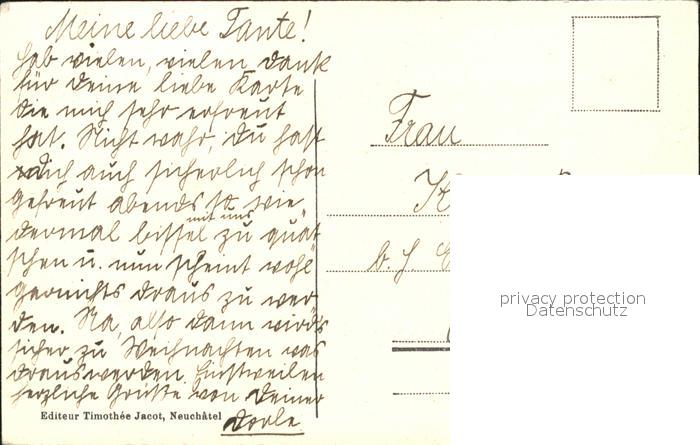 Meine liebe Tante!
Hab vielen, vielen Dank
für Deine liebe Karte
die mich sehr erfreut
hat. Nicht wahr, Du hast
Dich auch sicherlich schon
gefreut abends so wie
dermal bissel mit uns zu quat
schen u. nun scheint wohl
garnichts draus zu wer
den. Na, also dann wird's
sicher zu Weihnachten was
draus werden. Einstweilen
herzliche Grüße von Deiner
Dorle
Editeur Timothée Jacot, Neuchâtel
Frau
K
b. H.
privacy protection
Datenschutz